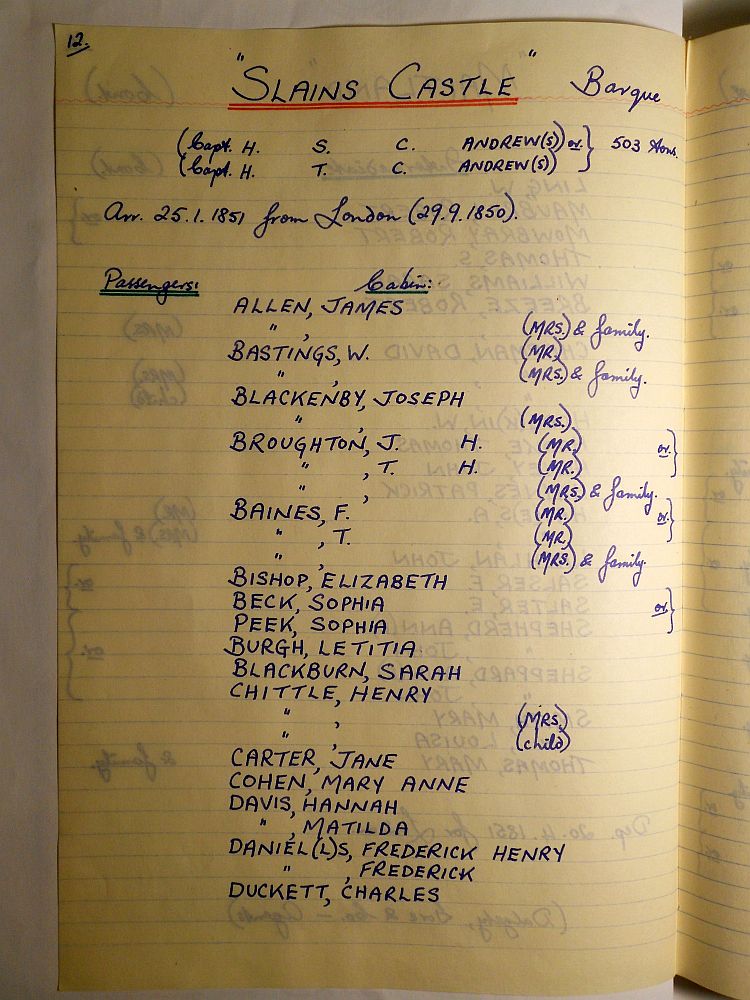 12.
"SLAINS CASTLE" Barque
(Capt. H. S. C. ANDREW(S)) or } 503 tons.
(Capt. H. T. C. ANDREW(S))
Arr. 25.1.1851 from London (29.9.1850).
Passengers: Cabin:
ALLEN, JAMES
" , (MRS.) & family.
BASTINGS, W. (MR.)
" , (MRS.) & family.
BLACKENBY, JOSEPH
" , (MRS.)
BROUGHTON, J. H. (MR.) or }
" , T. H. (MR.)
" , (MRS.) & family.
BAINES, F. (MR.) or }
" , T. (MR.)
" , (MRS.) & family.
BISHOP, ELIZABETH
BECK, SOPHIA or }
PEEK, SOPHIA
BURGH, LETITIA
BLACKBURN, SARAH
CHITTLE, HENRY
" , (MRS.)
" , (child)
CARTER, JANE
COHEN, MARY ANNE
DAVIS, HANNAH
" , MATILDA
DANIEL(L)S, FREDERICK HENRY
" , FREDERICK
DUCKETT, CHARLES